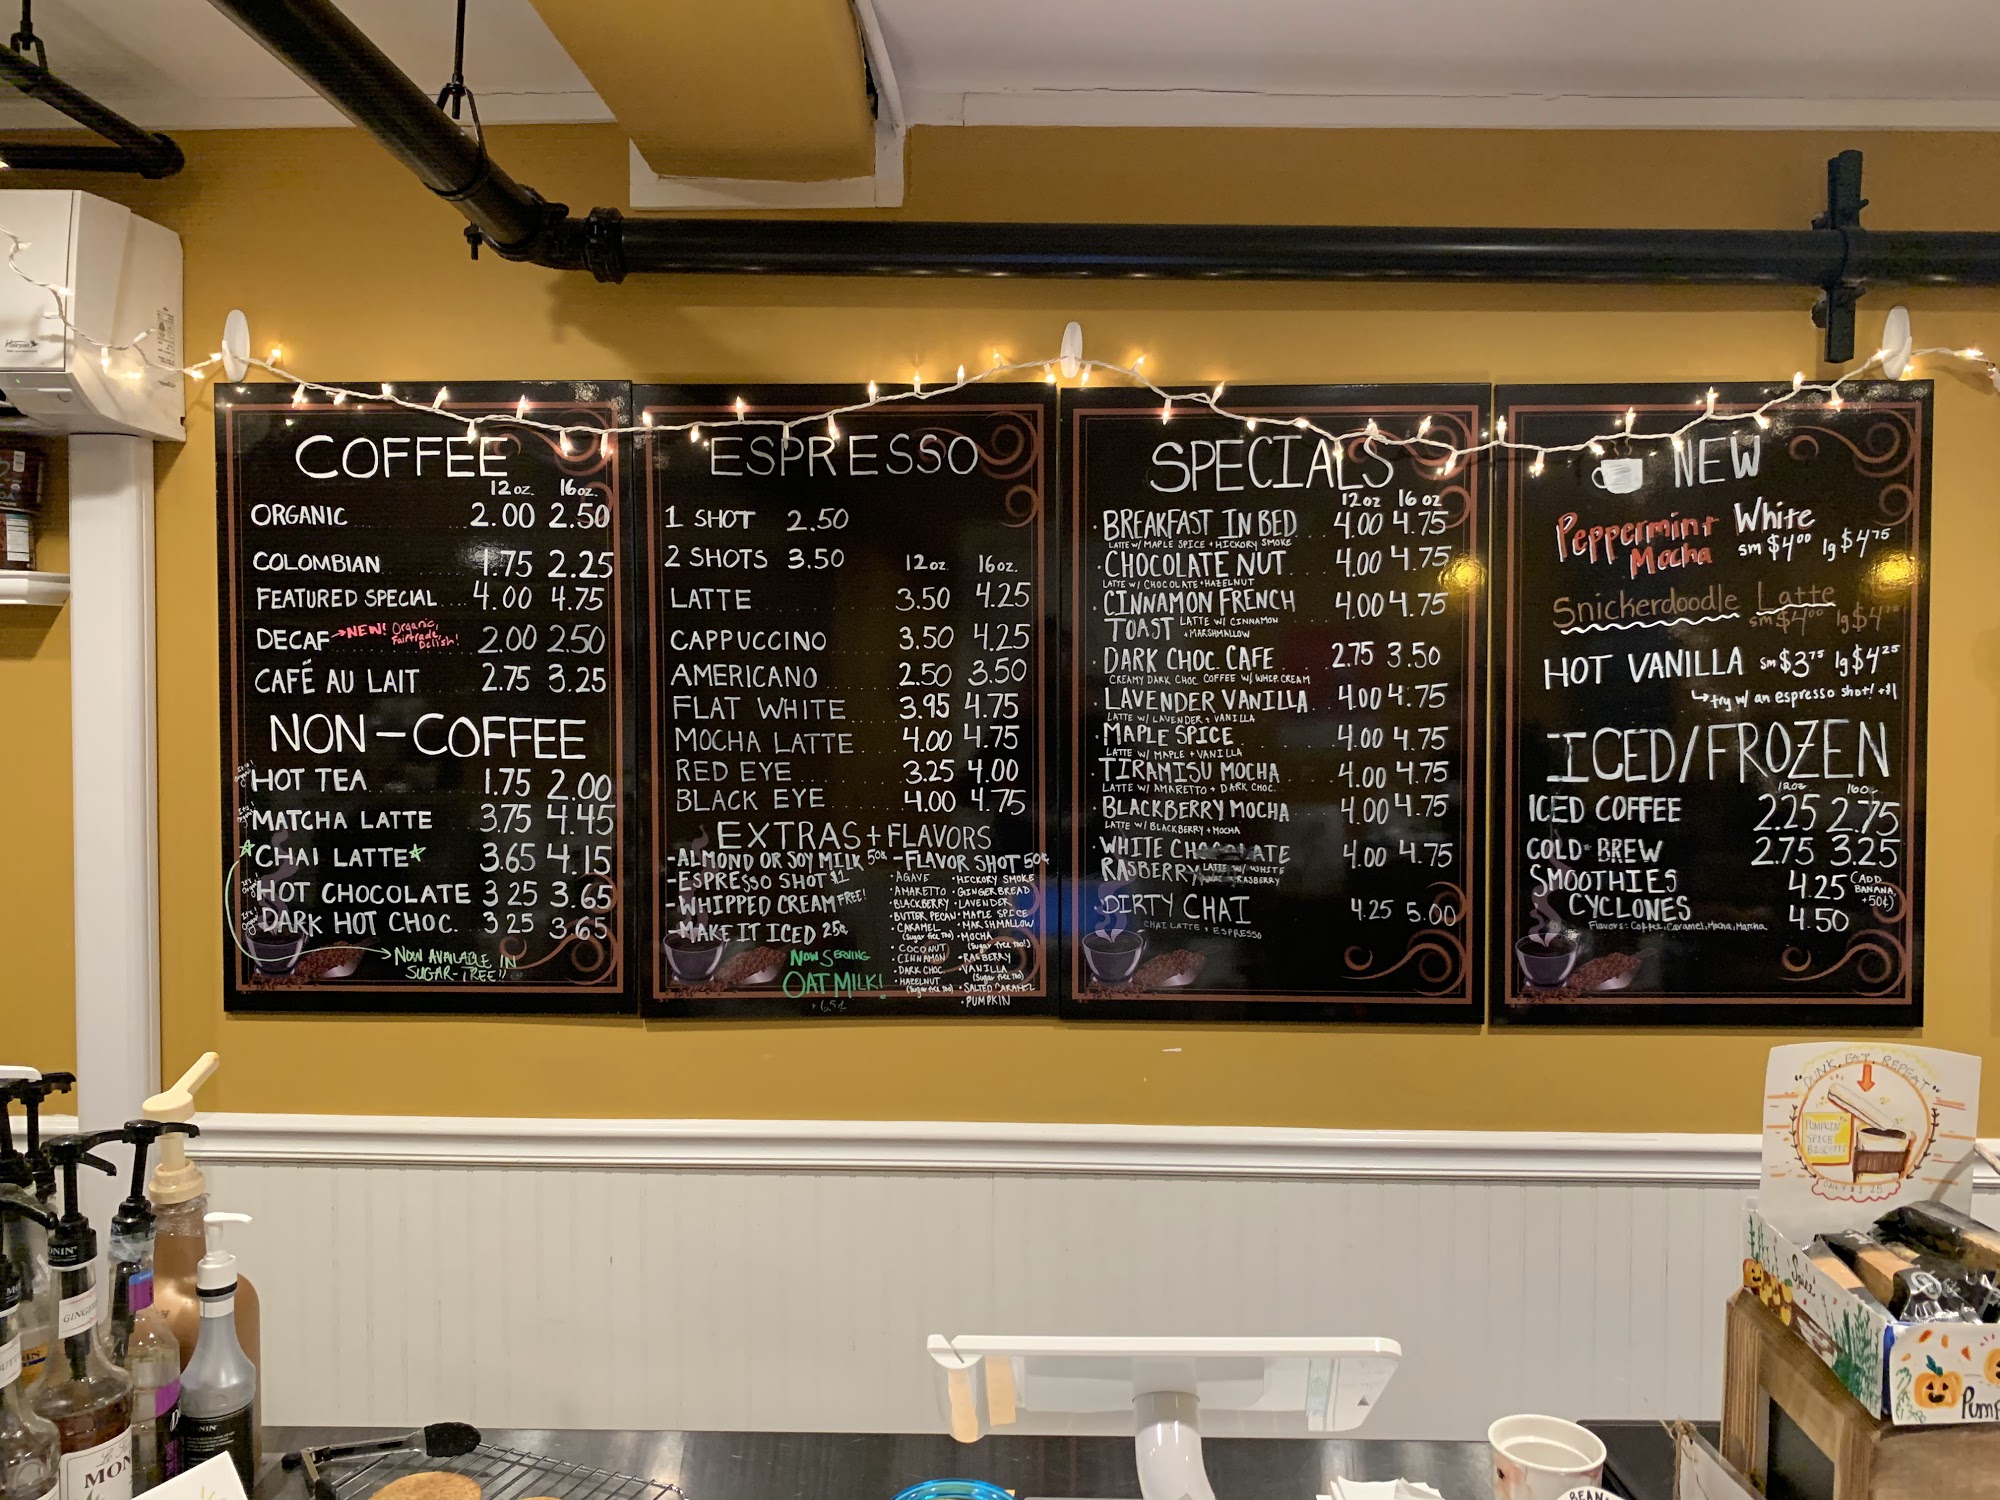 COFFEE
12 oz. 16 oz.
ORGANIC 2.00 2.50
COLOMBIAN 1.75 2.25
FEATURED SPECIAL.... 4.00 4.75
DECAF → NEW! Organic, Fairtrade, Delish! 2.00 2.50
CAFÉ AU LAIT 2.75 3.25
NON-COFFEE
HOT TEA 1.75 2.00
MATCHA LATTE 3.75 4.45
CHAI LATTE 3.65 4.15
HOT CHOCOLATE 3 25 3.65
DARK HOT CHOC. 3 25 3.65
NOW AVAILABLE IN
SUGAR-FREE!!
ESPRESSO
1 SHOT 2.50
2 SHOTS 3.50
12 oz 16 oz.
LATTE 3.50 4.25
CAPPUCCINO 3.50 4.25
AMERICANO 2.50 3.50
FLAT WHITE 3.95 4.75
MOCHA LATTE 4.00 4.75
RED EYE 3.25 4.00
BLACK EYE 4.00 4.75
EXTRAS + FLAVORS
-ALMOND OR SOY MILK 50¢
-ESPRESSO SHOT $1
-WHIPPED CREAM FREE!
-MAKE IT ICED 25¢
NOW SERVING
OAT MILK!
-FLAVOR SHOT 50¢
• AGAVE
• AMARETTO
• BLACKBERRY
• BUTTER PECAN
• CARAMEL
(Sugar free too)
• COCONUT
• CINNAMON
• DARK CHOC
• HAZELNUT
(Sugar free too)
• HICKORY SMOKE
• GINGERBREAD
• LAVENDER
• MAPLE SPICE
• MARSHMALLOW
• MOCHA
(Sugar free too!)
• RASBERRY
• VANILLA
(Sugar free too)
• SALTED CARAMEL
• PUMPKIN
SPECIALS
12 oz 16 oz
• BREAKFAST IN BED 4.00 4.75
LATTE W/ MAPLE SPICE + HICKORY SMOKE
• CHOCOLATE NUT 4.00 4.75
LATTE W/ CHOCOLATE + HAZELNUT
• CINNAMON FRENCH 4.00 4.75
TOAST LATTE W/ CINNAMON
+ MARSHMALLOW
• DARK CHOC. CAFE 2.75 3.50
CREAMY DARK CHOC COFFEE W/ WHIP CREAM
• LAVENDER VANILLA 4.00 4.75
LATTE W/ LAVENDER + VANILLA
• MAPLE SPICE 4.00 4.75
LATTE W/ MAPLE + VANILLA
• TIRAMISU MOCHA 4.00 4.75
LATTE W/ AMARETTO + DARK CHOC.
• BLACKBERRY MOCHA 4.00 4.75
LATTE W/ BLACKBERRY + MOCHA
• WHITE CHOCOLATE 4.00 4.75
RASBERRY LATTE W/ WHITE
RASBERRY
• DIRTY CHAI 4.25 5.00
CHAI LATTE + ESPRESSO
NEW
Peppermint White
Mocha sm $4.00 lg $4.75
Snickerdoodle Latte
sm $4.00
HOT VANILLA sm $3.75 lg $4.25
↳ try w/ an espresso shot! +$1
ICED/FROZEN
12oz 16oz
ICED COFFEE 2.25 2.75
COLD BREW 2.75 3.25
SMOOTHIES 4.25 (ADD
BANANA,
+50¢)
CYCLONES 4.50
Flavors: Coffee, Caramel, Mocha, Matcha
"DUNK, EAT, REPEAT"
PUMPKIN
SPICE
BISCOTTI
ONLY 1.25
Spice
MONIN